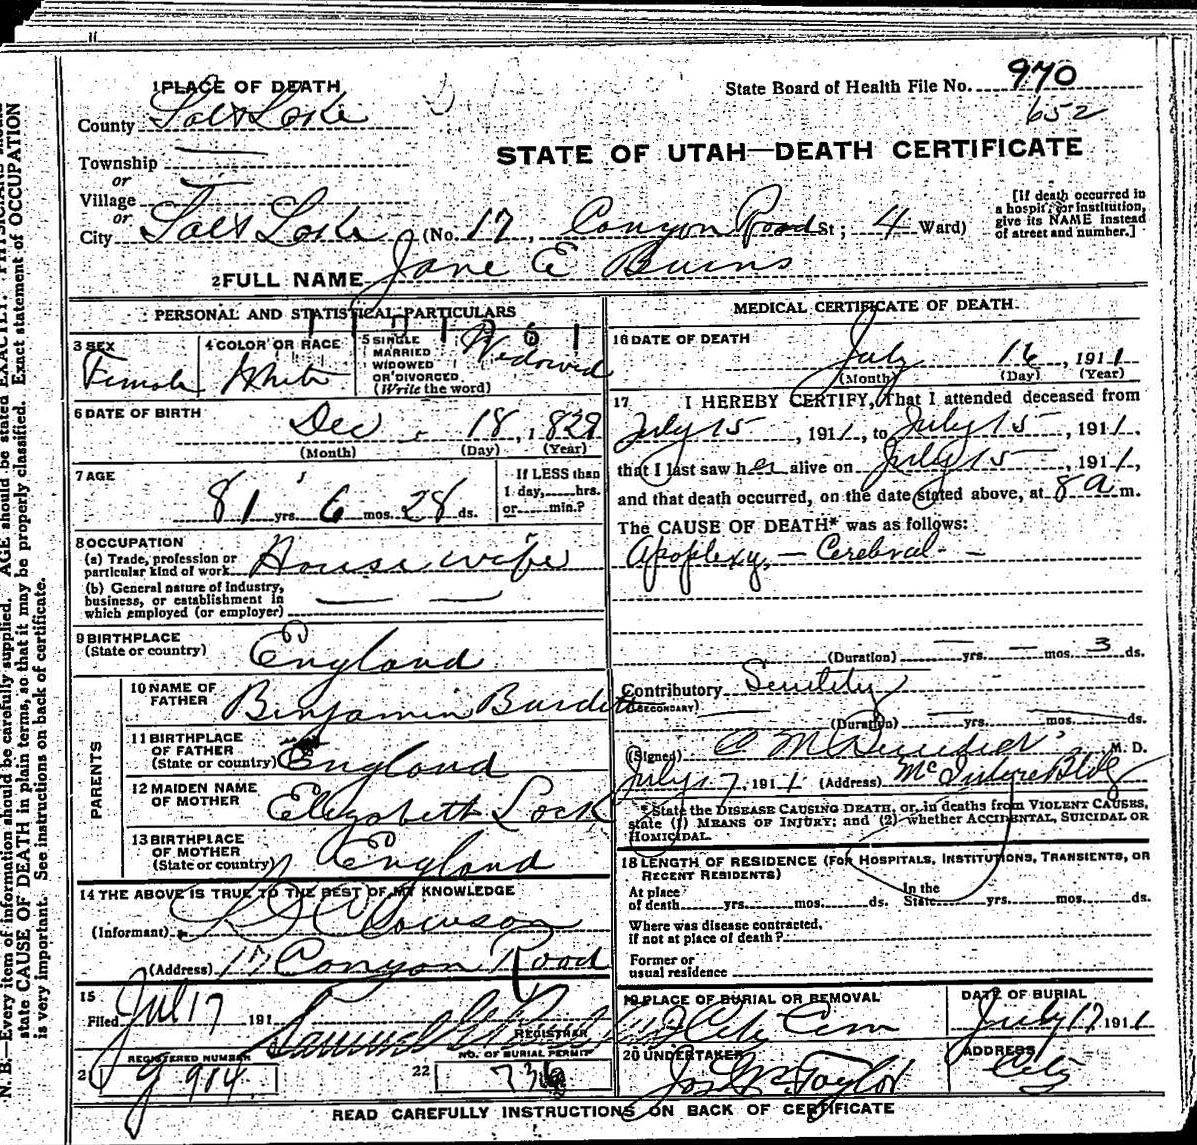 1 PLACE OF DEATH
State Board of Health File No. 970
652
County Salt Lake
STATE OF UTAH—DEATH CERTIFICATE
Township
or
Village
or
City Salt Lake (No. 17, Canyon Road St; 4 Ward)
[If death occurred in
a hospital or institution,
give its NAME instead
of street and number.]
2 FULL NAME Jane E Burns
PERSONAL AND STATISTICAL PARTICULARS
3 SEX
Female
4 COLOR OR RACE
White
5 SINGLE
MARRIED
WIDOWED
OR DIVORCED
(Write the word)
Widowed
6 DATE OF BIRTH
Dec 18, 1829
(Month) (Day) (Year)
7 AGE
81 yrs. 6 mos. 28 ds.
If LESS than
1 day, hrs.
or min.?
8 OCCUPATION
(a) Trade, profession or
particular kind of work House wife
(b) General nature of industry,
business, or establishment in
which employed (or employer)
9 BIRTHPLACE
(State or country) England
PARENTS
10 NAME OF
FATHER Benjamin Burdett
11 BIRTHPLACE
OF FATHER
(State or country) England
12 MAIDEN NAME
OF MOTHER Elizabeth Lock
13 BIRTHPLACE
OF MOTHER
(State or country) England
14 THE ABOVE IS TRUE TO THE BEST OF MY KNOWLEDGE
(Informant) Clawson
(Address) 17 Canyon Road
15
Filed Jul 17 191
Samuel G
REGISTRAR
REGISTERED NUMBER
21 914
NO. OF BURIAL PERMIT
22 736
MEDICAL CERTIFICATE OF DEATH
16 DATE OF DEATH
July 16, 1911
(Month) (Day) (Year)
17 I HEREBY CERTIFY, That I attended deceased from
July 15, 1911, to July 15, 1911,
that I last saw her alive on July 15, 1911,
and that death occurred, on the date stated above, at 8 a m.
The CAUSE OF DEATH* was as follows:
Apoplexy, — Cerebral
(Duration) yrs. mos. 3 ds.
Contributory Senility
(SECONDARY)
(Duration) yrs. mos. ds.
(Signed) C M Benedict M. D.
July 17, 1911 (Address) McIntyre Bldg
*State the DISEASE CAUSING DEATH, or, in deaths from VIOLENT CAUSES,
state (1) MEANS OF INJURY; and (2) whether ACCIDENTAL, SUICIDAL OR
HOMICIDAL.
18 LENGTH OF RESIDENCE (FOR HOSPITALS, INSTITUTIONS, TRANSIENTS, OR
RECENT RESIDENTS)
At place
of death yrs. mos. ds.
In the
State yrs. mos. ds.
Where was disease contracted,
if not at place of death?
Former or
usual residence
19 PLACE OF BURIAL OR REMOVAL
City Cem
DATE OF BURIAL
July 17 1911
20 UNDERTAKER
Jos Wm Taylor
ADDRESS
City
READ CAREFULLY INSTRUCTIONS ON BACK OF CERTIFICATE
N. B.—Every item of information should be carefully supplied. AGE should be stated EXACTLY. PHYSICIANS should
state CAUSE OF DEATH in plain terms, so that it may be properly classified. Exact statement of OCCUPATION
is very important. See instructions on back of certificate.